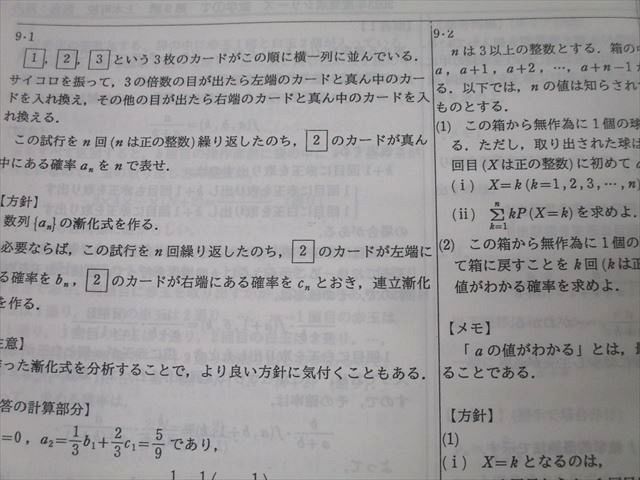 9・1
1, 2, 3 という3枚のカードがこの順に横一列に並んでいる.
サイコロを振って, 3の倍数の目が出たら左端のカードと真ん中のカー
ドを入れ換え, その他の目が出たら右端のカードと真ん中のカードを入
れ換える.
この試行を n 回 (n は正の整数) 繰り返したのち, 2 のカードが真ん
中にある確率 aₙ を n で表せ.
【方針】
数列 {aₙ} の漸化式を作る.
必要ならば, この試行を n 回繰り返したのち, 2 のカードが左端に
る確率を bₙ, 2 のカードが右端にある確率を cₙ とおき, 連立漸化
を作る.
注意】
った漸化式を分析することで, より良い方針に気付くこともある.
答の計算部分】
=0, a₂=1/3 b₁+2/3 c₁=5/9 であり,
9・2
n は3以上の整数とする. 箱の
a, a+1, a+2, …, a+n−1
る. 以下では, n の値は知らされ
ものとする.
(1) この箱から無作為に1個の球
る. ただし, 取り出された球は
回目 (X は正の整数) に初めて a
(ⅰ) X=k (k=1, 2, 3, …, n)
(ⅱ) Σ[k=1, n] kP(X=k) を求めよ.
(2) この箱から無作為に1個の
て箱に戻すことを k 回 (k は正
値がわかる確率を求めよ.
【メモ】
「a の値がわかる」とは,
ることである.
【方針】
(1)
(ⅰ) X=k となるのは,